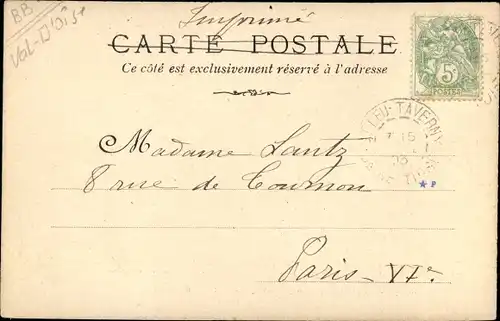 BB
Val-D'Oise
Imprimé
CARTE POSTALE
Ce côté est exclusivement réservé à l'adresse
5c
POSTES
LEU-TAVERNY
15
Madame Lantz
8 rue de Tournon
Paris-VIe